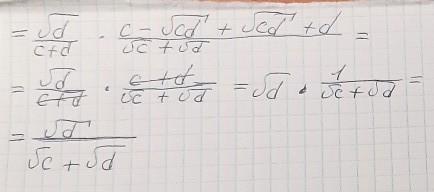 = √d / c+d · c − √cd + √cd + d / √c + √d =
= √d / c+d · c+d / √c + √d = √d · 1 / √c + √d =
= √d / √c + √d